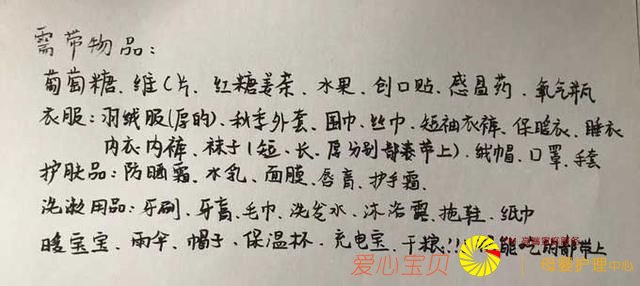 需带物品:
葡萄糖、维C片、红糖姜茶、水果、创口贴、感冒药、氧气瓶
衣服:羽绒服(厚的)、秋季外套、围巾、丝巾、短袖衣裤、保暖衣、睡衣
内衣内裤、袜子(短、长、厚分别都要带上)、绒帽、口罩、手套
护肤品:防晒霜、水乳、面膜、唇膏、护手霜、
洗漱用品:牙刷、牙膏、毛巾、洗发水、沐浴露、拖鞋、纸巾
暖宝宝、雨伞、帽子、保温杯、充电宝、干粮!!!能吃的都带上
爱心宝贝
母婴护理中心